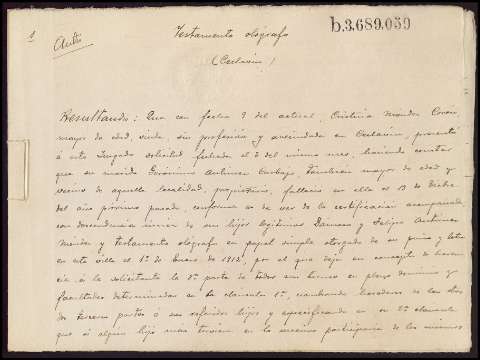 1
Auto
b.3.689.059
Testamento ológrafo
(Ceclavín)
Resultando: Que con fecha 9 del actual, Cristina Morales
mayor de edad, viuda, sin profesión y avecindada en Ceclavín, presentó
á este Juzgado solicitud fechada el 2 del mismo mes, haciendo constar
que su marido Gerónimo Antúnez también mayor de edad y
vecino de aquella localidad, propietario, falleció en ella el 13 de Dicbre
del año próximo pasado, conforme es de ver de la certificación acompañada
con descendencia de sus hijos legítimos Dámaso y Felipa Antúnez
y testamento ológrafo en papel simple otorgado de su puño y letra
en esta villa el 1º de Enero de 1912, por el que deja en concepto de heren-
cia á la solicitante la 3ª parte de todos sus bienes en pleno dominio y
facultades determinadas en la cláusula 1ª, nombrando herederos de las otras
dos terceras partes á sus referidos hijos y especificando en su 2ª cláusula
que si algún hijo más tuviera en la misma participaría de los mismos